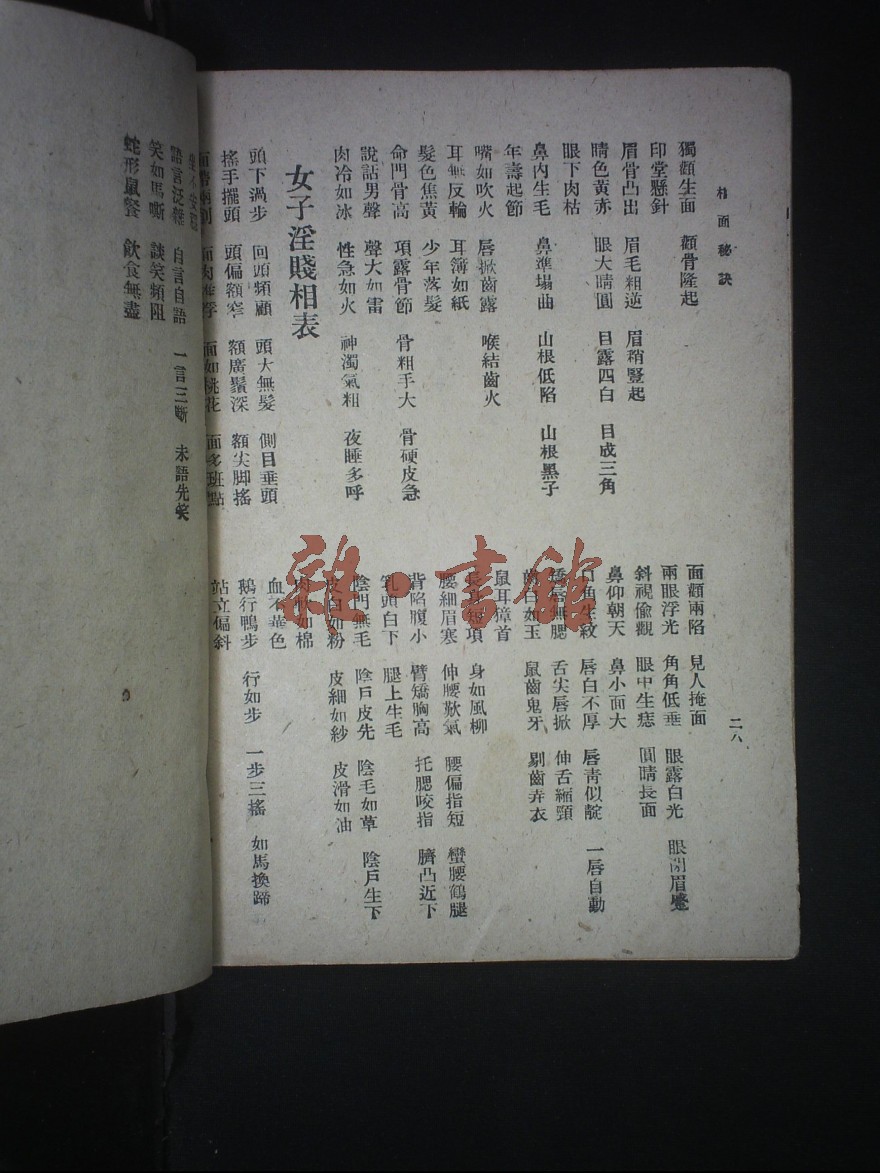 相面秘訣
二八
獨顴生面 顴骨隆起
印堂懸針
眉骨凸出 眉毛粗逆 眉稍豎起
睛色黃赤 眼大睛圓 目露四白 目成三角
眼下肉枯
鼻內生毛 鼻準塌曲 山根低陷 山根黑子
年壽起節
嘴如吹火 唇掀齒露 喉結齒火
耳無反輪 耳簿如紙
髮色焦黃 少年落髮
命門骨高 項露骨節 骨粗手大 骨硬皮急
說話男聲 聲大如雷
肉冷如冰 性急如火 神濁氣粗 夜睡多呼
女子淫賤相表
頭下過步 回頭頻顧 頭大無髮 側目垂頭
搖手擺頭 頭偏額窄 額廣鬚深 額尖脚搖
面如桃花 面多班點
面顴兩陷 見人掩面
兩眼浮光 角角低垂 眼露白光 眼閉眉蹙
斜視偷觀 眼中生痣 圓睛長面
鼻仰朝天 鼻小面大
口角生紋 唇白不厚 唇青似靛 一唇自動
無腮 舌尖唇掀 伸舌縮頸
齒白如玉 鼠齒鬼牙 剔齒弄衣
鼠耳獐首
長身短項 身如風柳
腰細眉寒 伸腰歎氣 腰偏指短 蠻腰鶴腿
背陷腹小 臂矯胸高 托腮咬指 臍凸近下
乳頭白下 腿上生毛
陰門無毛 陰戶皮先 陰毛如草 陰戶生下
皮白如粉 皮細如紗 皮滑如油
肉軟如棉
血不華色
鵝行鴨步 行如步 一步三搖 如馬換蹄
站立偏斜
語言泛雜 自言自語 一言三斷 未語先笑
笑如馬嘶 談笑頻阻
蛇形鼠餐 飲食無盡
雜·書館